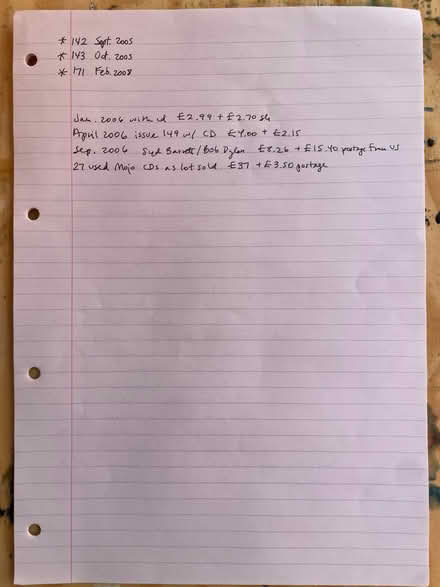 * 142 Sept. 2005
* 143 Oct. 2005
* 171 Feb. 2008
Jan. 2006 with cd £2.99 + £2.70
April 2006 issue 149 w/ CD £4.00 + £2.15
Sep. 2006 Syd Barrett/Bob Dylan £8.26 + £15.40 postage from US
27 used Mojo CDs as lot sold £37 + £3.50 postage